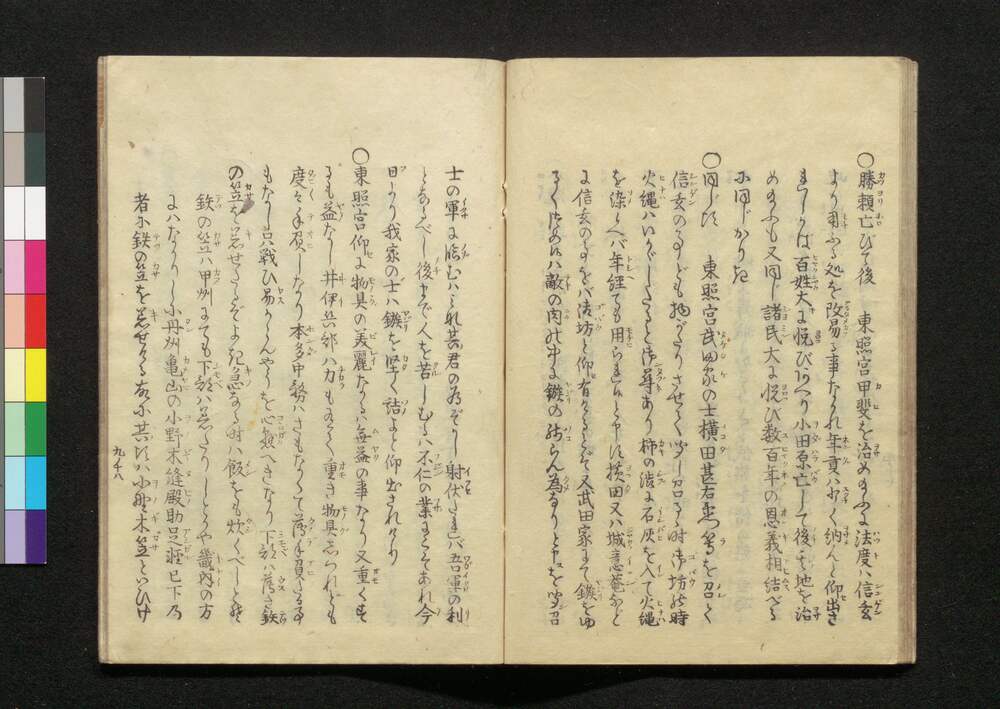 〇勝頼亡びて後　東照宮甲斐を治め給ふに法度ハ信玄
より用ふる処を改易る事なかれ年貢ハ少く納んと仰出さ
れしかば百姓大に悦びけり小田原亡して後其地を治
め給ふも又同じ諸民大に悦び数百年の恩義相結べる
に同じかりき
〇同じ頃　東照宮武田家の士横田甚右衛門等を召て
信玄の事ども物がたりさせて聞し召る時御坊の時
火縄ハいかゞしたると御尋あり柿の渋に石灰を入て火縄
を染れバ年経ても用らるゝと申に横田又ハ城意菴など
に信玄の事をバ法坊と仰有けるとぞ又武田家にて鏃をゆ
るく はハ敵の肉の中に鏃の残らん為なりと申を聞召
士の軍に臨むハされ其君の為ぞかし射伏たれバ吾軍の利
とあるべし後まで人を苦しむるハ不仁の業にこそあれ今
日より我家の士ハ鏃を堅く詰よと仰出されけり
〇東照宮仰に物具の美麗なるハ無益の事なり又重くす
るも益なし井伊兵部ハ力も有て重き物具きつれども
度々手負しなり本多中務ハさもなくて薄手負たる事
もなし只戦ひ易からんやうを心懸へきなり下部ハ薄き鉄
の笠を着せたるぞよき急なる時ハ飯をも炊くべしとぞ
鉄の笠ハ甲州にても下部ハ着たりしとかや畿内の方
にハなかりしに丹州亀山の小野木縫殿助足軽已下乃
者に鉄の笠を着せける故に其頃ハ小野木笠といひけ
九ノ十八